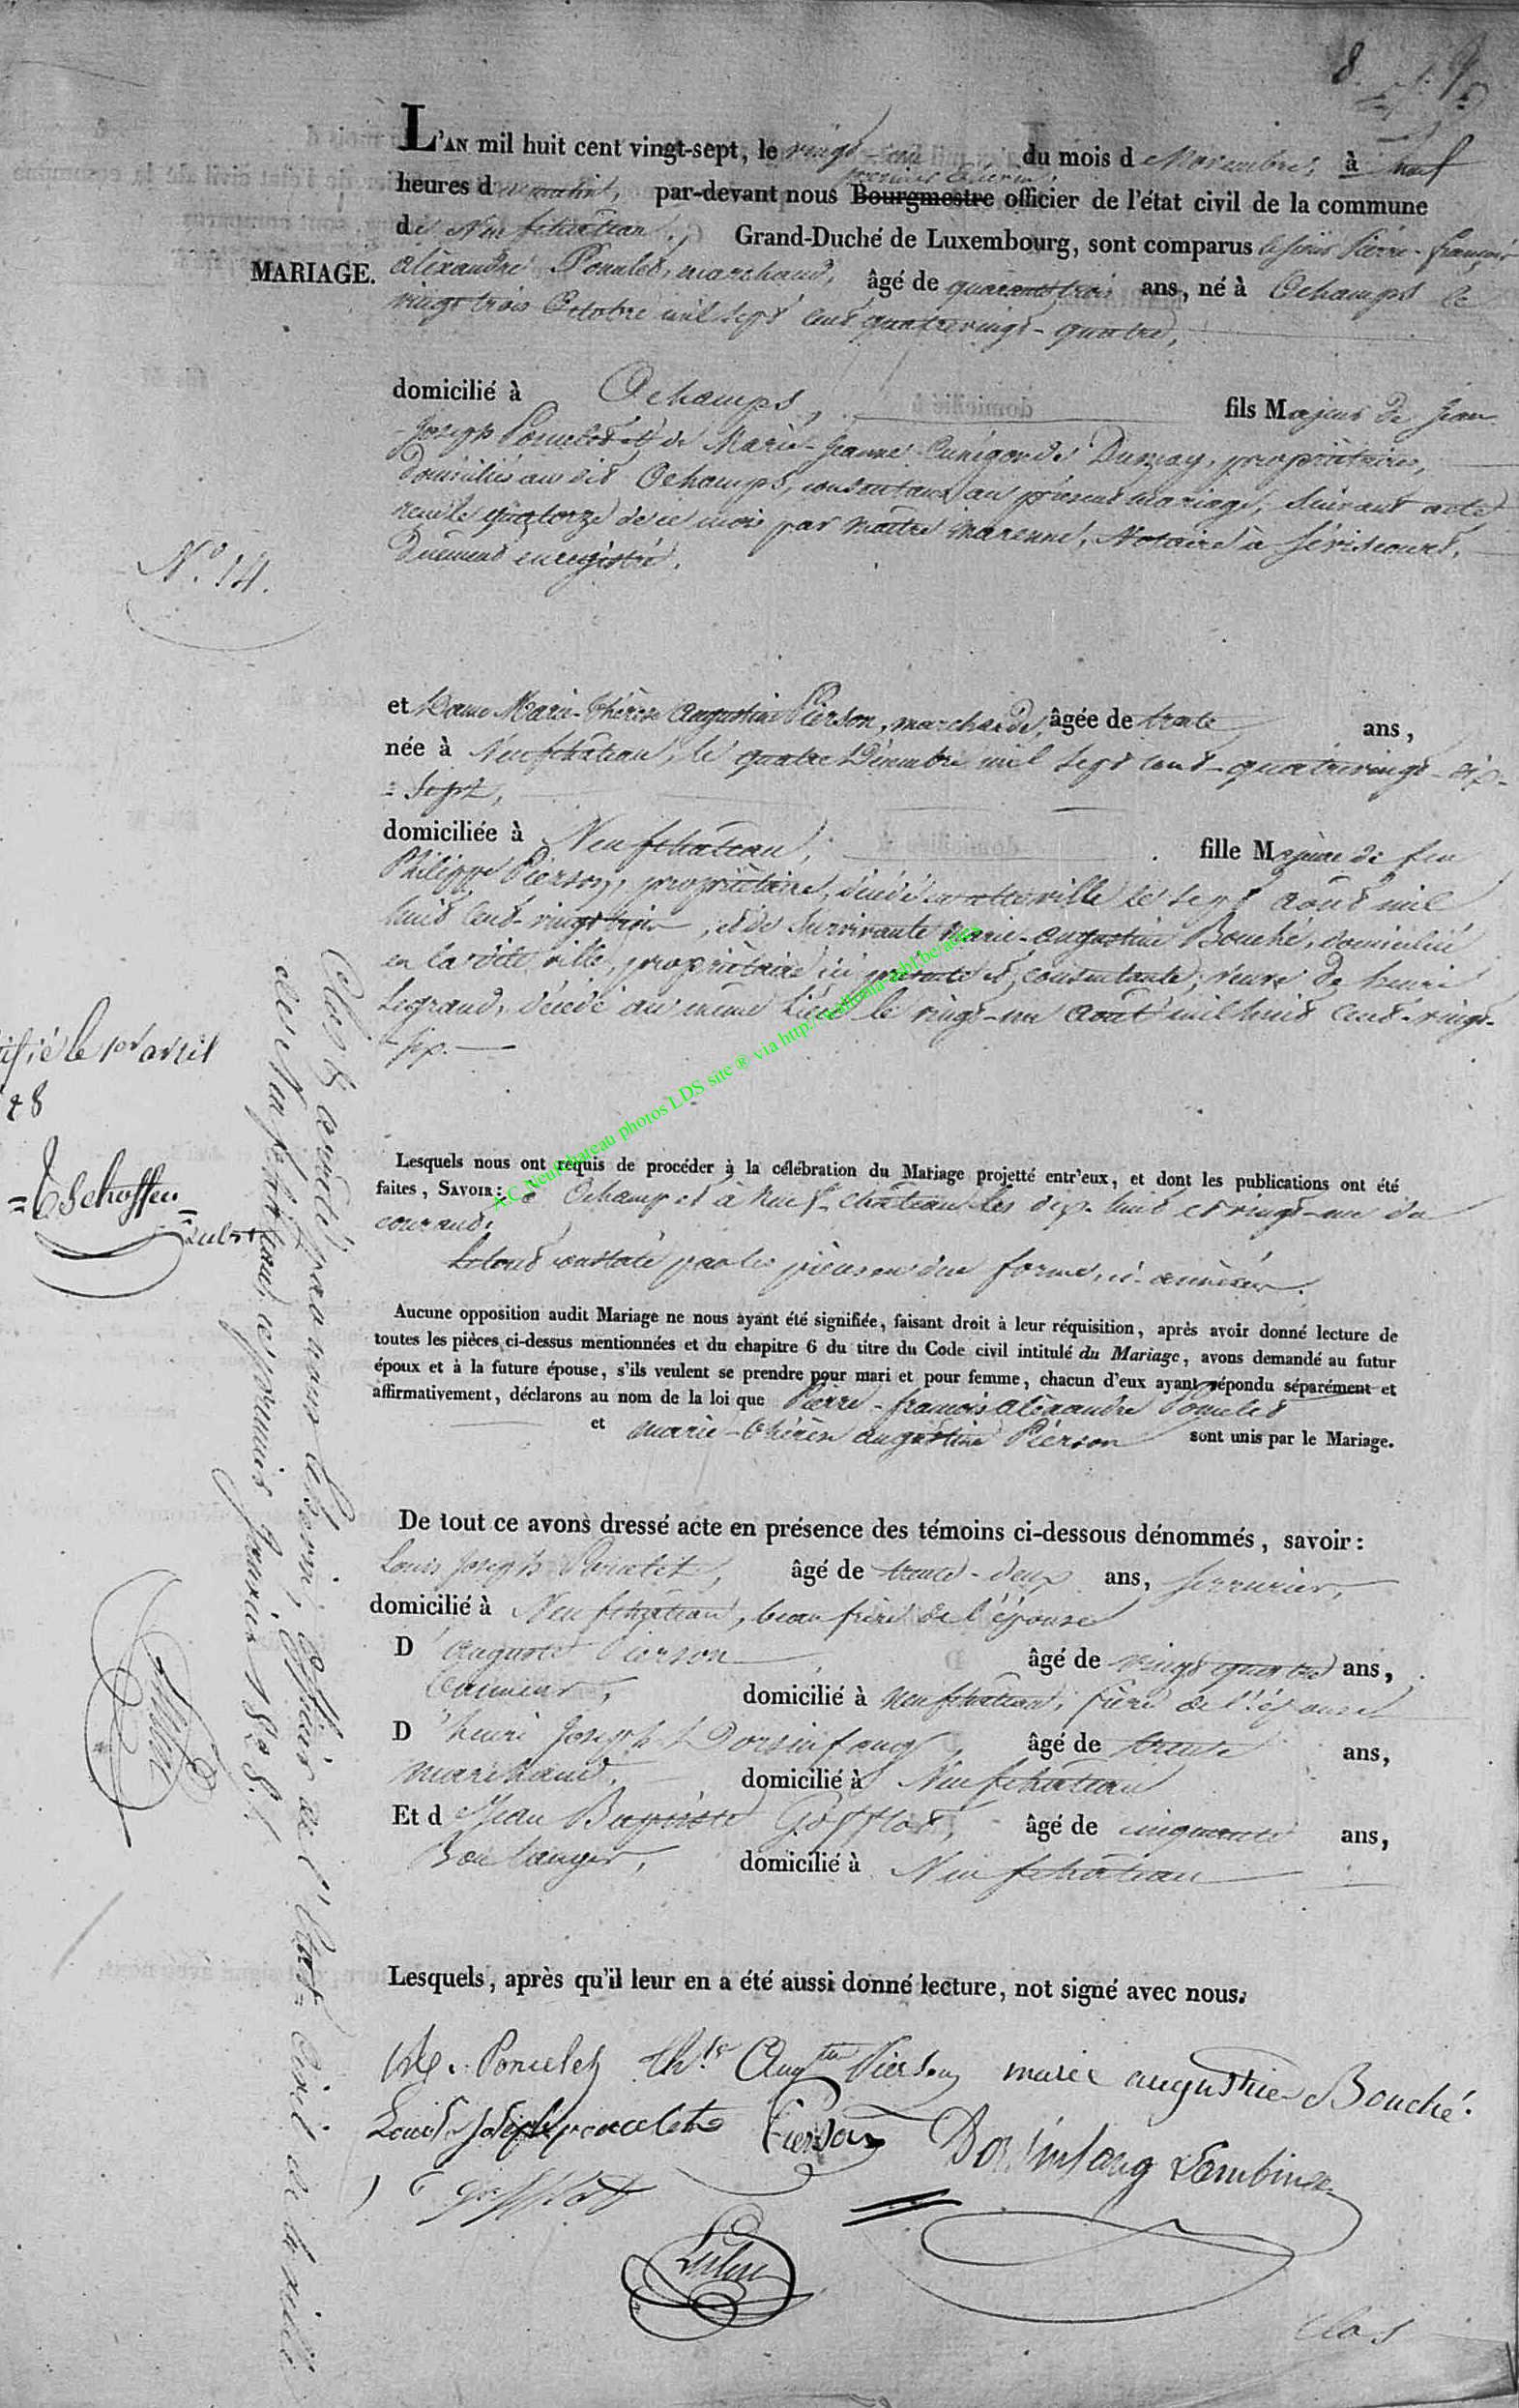 8.
L'AN mil huit cent vingt-sept, le vingt-un du mois d Novembre, à neuf
premier Echevin,
heures d u matin, par-devant nous Bourgmestre officier de l'état civil de la commune
de Neufchâteau, Grand-Duché de Luxembourg, sont comparus Pierre-françois
MARIAGE.
alexandre Poncelet, marchand, âgé de quarante trois ans, né à Ochamps le
vingt trois Octobre mil sept cent quatrevingt-quatre,
domicilié à Ochamps, fils Majeur de Jean
Joseph Poncelet et de Marie-Jeanne Cunégonde Dunzay, propriétaires,
domiciliés au dit Ochamps, consentans au présent mariage, suivant acte
reçu le quatorze de ce mois par maître marenne, Notaire à
Duement enregistré.
N.º 14.
et Dame Marie-Thérèse Augustine Pierson, marchande, âgée de trente ans,
née à Neufchâteau, le quatre Décembre mil sept cent-quatrevingt-dix-
=sept,
domiciliée à Neufchâteau, fille Majeure de feu
Philippe Pierson, propriétaire, décédé en cette ville le sept août mil
huit cent-vingt trois, et de survivante Marie-augustine Bouché, domiciliée
en la dite ville, propriétaire ici présente et consentante; veuve de henri
Legrand, décédé au même lieu le vingt-un août mil huit cent-vingt-
six.
A.C. Neufchateau photos LDS site ® via http://
Lesquels nous ont requis de procéder à la célébration du Mariage projetté entr'eux, et dont les publications ont été
faites, SAVOIR: à Ochamps et à Neufchâteau les dix-huit et vingt-un du
courant.
Le tout constaté par les pièces en due forme, ci-annéxées.
Aucune opposition audit Mariage ne nous ayant été signifiée, faisant droit à leur réquisition, après avoir donné lecture de
toutes les pièces ci-dessus mentionnées et du chapitre 6 du titre du Code civil intitulé du Mariage, avons demandé au futur
époux et à la future épouse, s'ils veulent se prendre pour mari et pour femme, chacun d'eux ayant répondu séparément et
affirmativement, déclarons au nom de la loi que Pierre-francois alexandre Poncelet
et marie-thérèse augustine Pierson sont unis par le Mariage.
De tout ce avons dressé acte en présence des témoins ci-dessous dénommés, savoir:
Louis Joseph Poncelet, âgé de trente-deux ans, serrurier,
domicilié à Neufchâteau, beau frère de l'épouse
D' auguste Pierson âgé de vingt quatre ans,
Tanneur, domicilié à Neufchâteau, frère de l'épouse
D' henri Joseph Dorsinfang, âgé de trente ans,
marchand, domicilié à Neufchâteau
Et d e Jean Baptiste Gofflot, âgé de cinquante ans,
Boulanger, domicilié à Neufchâteau
Lesquels, après qu'il leur en a été aussi donné lecture, ont signé avec nous.
Alex. Poncelet th.se Aug.tin Pierson marie augustine Bouché.
Louis joseph poncelet Pierson Dorsinfang Lambinet
Gofflot
Clos
tifié le 1er avril
28
=TSchoffen=
Clos & arrêté par nous Echevin, Officier de l'Etat=Civil de la ville
de Neufchâteau, ce premier Janvier 1828.